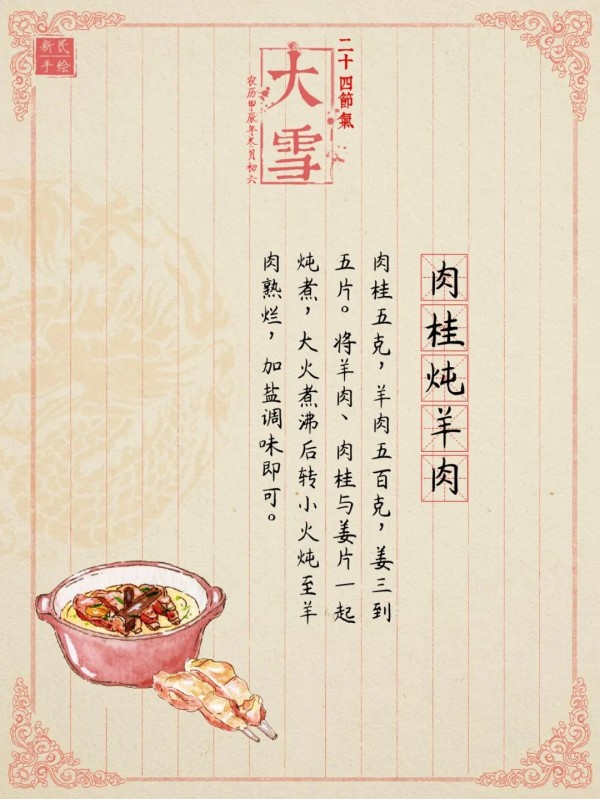 新氏
手绘
二十四節氣
大雪
农历甲辰年冬月初六
肉桂炖羊肉
肉桂五克，羊肉五百克，姜三到
五片。将羊肉、肉桂与姜片一起
炖煮，大火煮沸后转小火炖至羊
肉熟烂，加盐调味即可。